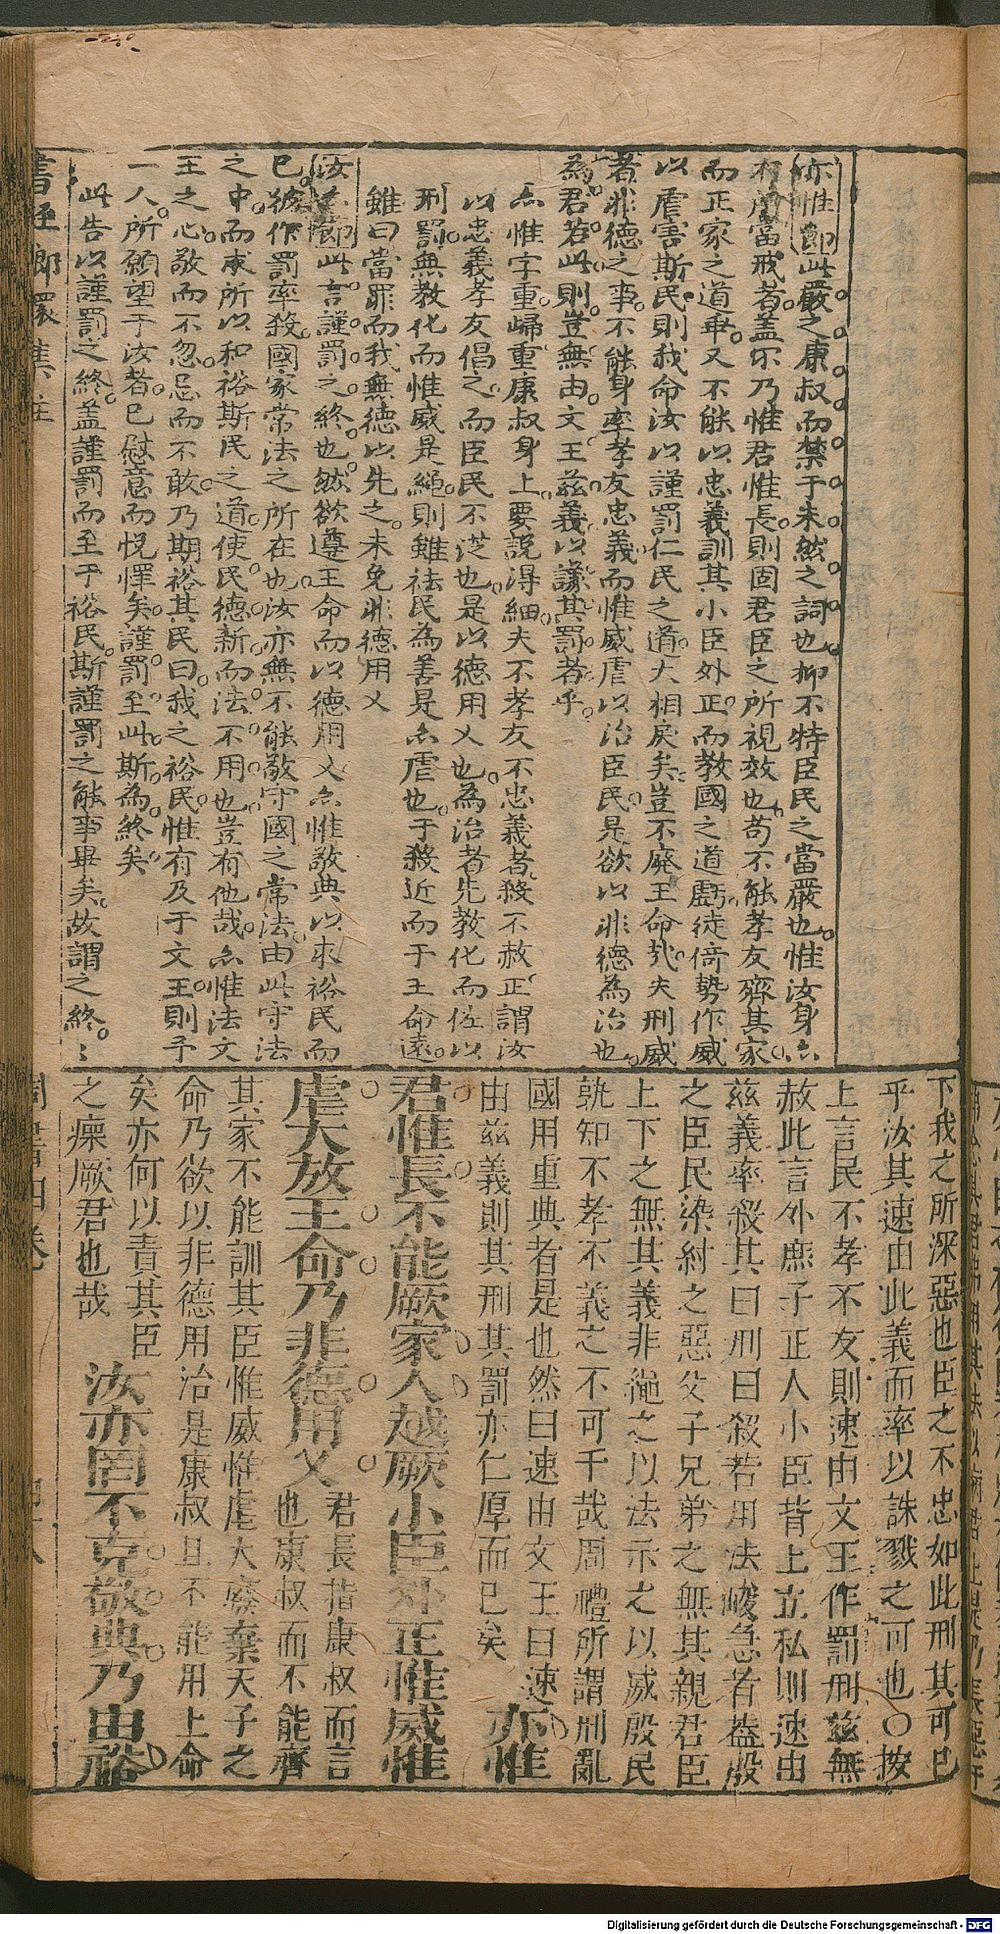 亦惟節此嚴之康叔而禁于未然之詞也抑不特臣民之當嚴也惟汝身亦
有所當戒者盖不乃惟君惟長則固君臣之所視效也苟不能孝友齊其家
而正家之道乖又不能以忠義訓其小臣外正而教國之道虧徒倚勢作威
以虐害斯民則我命汝以謹罰仁民之道大相戾矣豈不廢王命㢤夫刑威
者非德之事不能身率孝友忠義而惟威虐以治臣民是欲以非德為治也
為君若此則豈無由文王茲義以議其罰者乎
亦惟字重歸重康叔身上要說得細夫不孝友不忠義者殺不赦正謂汝
以忠義孝友倡之而臣民不從也是以德用乂也為治者先教化而佐以
刑罰無教化而惟威是繩則雖祛民為善是亦虐也于殺近而于王命遠
雖曰當罪而我無德以先之未免非德用乂
汝亦節此言謹罰之終也然欲遵王命而以德用乂亦惟敬典以求裕民而
已彼作罰率殺國家常法之所在也汝亦無不能敬守國之常法由此守法
之中而求所以和裕斯民之道使民德新而法不用也豈有他哉亦惟法文
王之心敬而不忽忌而不敢乃期裕其民曰我之裕民惟有及于文王則予
一人所願望于汝者已慰意而悅懌矣謹罰至此斯為終矣
此告以謹罰之終盖謹罰而至于裕民斯謹罰之能事畢矣故謂之終
下我之所深惡也臣之不忠如此刑其可已
乎汝其速由此義而率以誅戮之可也〇按
上言民不孝不友則速由文王作罰刑茲無
赦此言外庶子正人小臣背上立私則速由
茲義率殺其曰刑曰殺若用法峻急者蓋殷
之臣民染紂之惡父子兄弟之無其親君臣
上下之無其義非繩之以法示之以威殷民
孰知不孝不義之不可干哉周禮所謂刑亂
國用重典者是也然曰速由文王曰速
由茲義則其刑其罰亦仁厚而已矣 亦惟
君惟長不能厥家人越厥小臣外正惟威惟
虐大放王命乃非德用乂 君長指康叔而言
也康叔而不能齊
其家不能訓其臣惟威惟虐大廢棄天子之
命乃欲以非德用治是康叔且不能用上命
矣亦何以責其臣
之瘝厥君也哉 汝亦罔不克敬典乃由裕
書經郎瓌集註
周書四卷
Digitalisierung gefördert durch die Deutsche Forschungsgemeinschaft - DFG